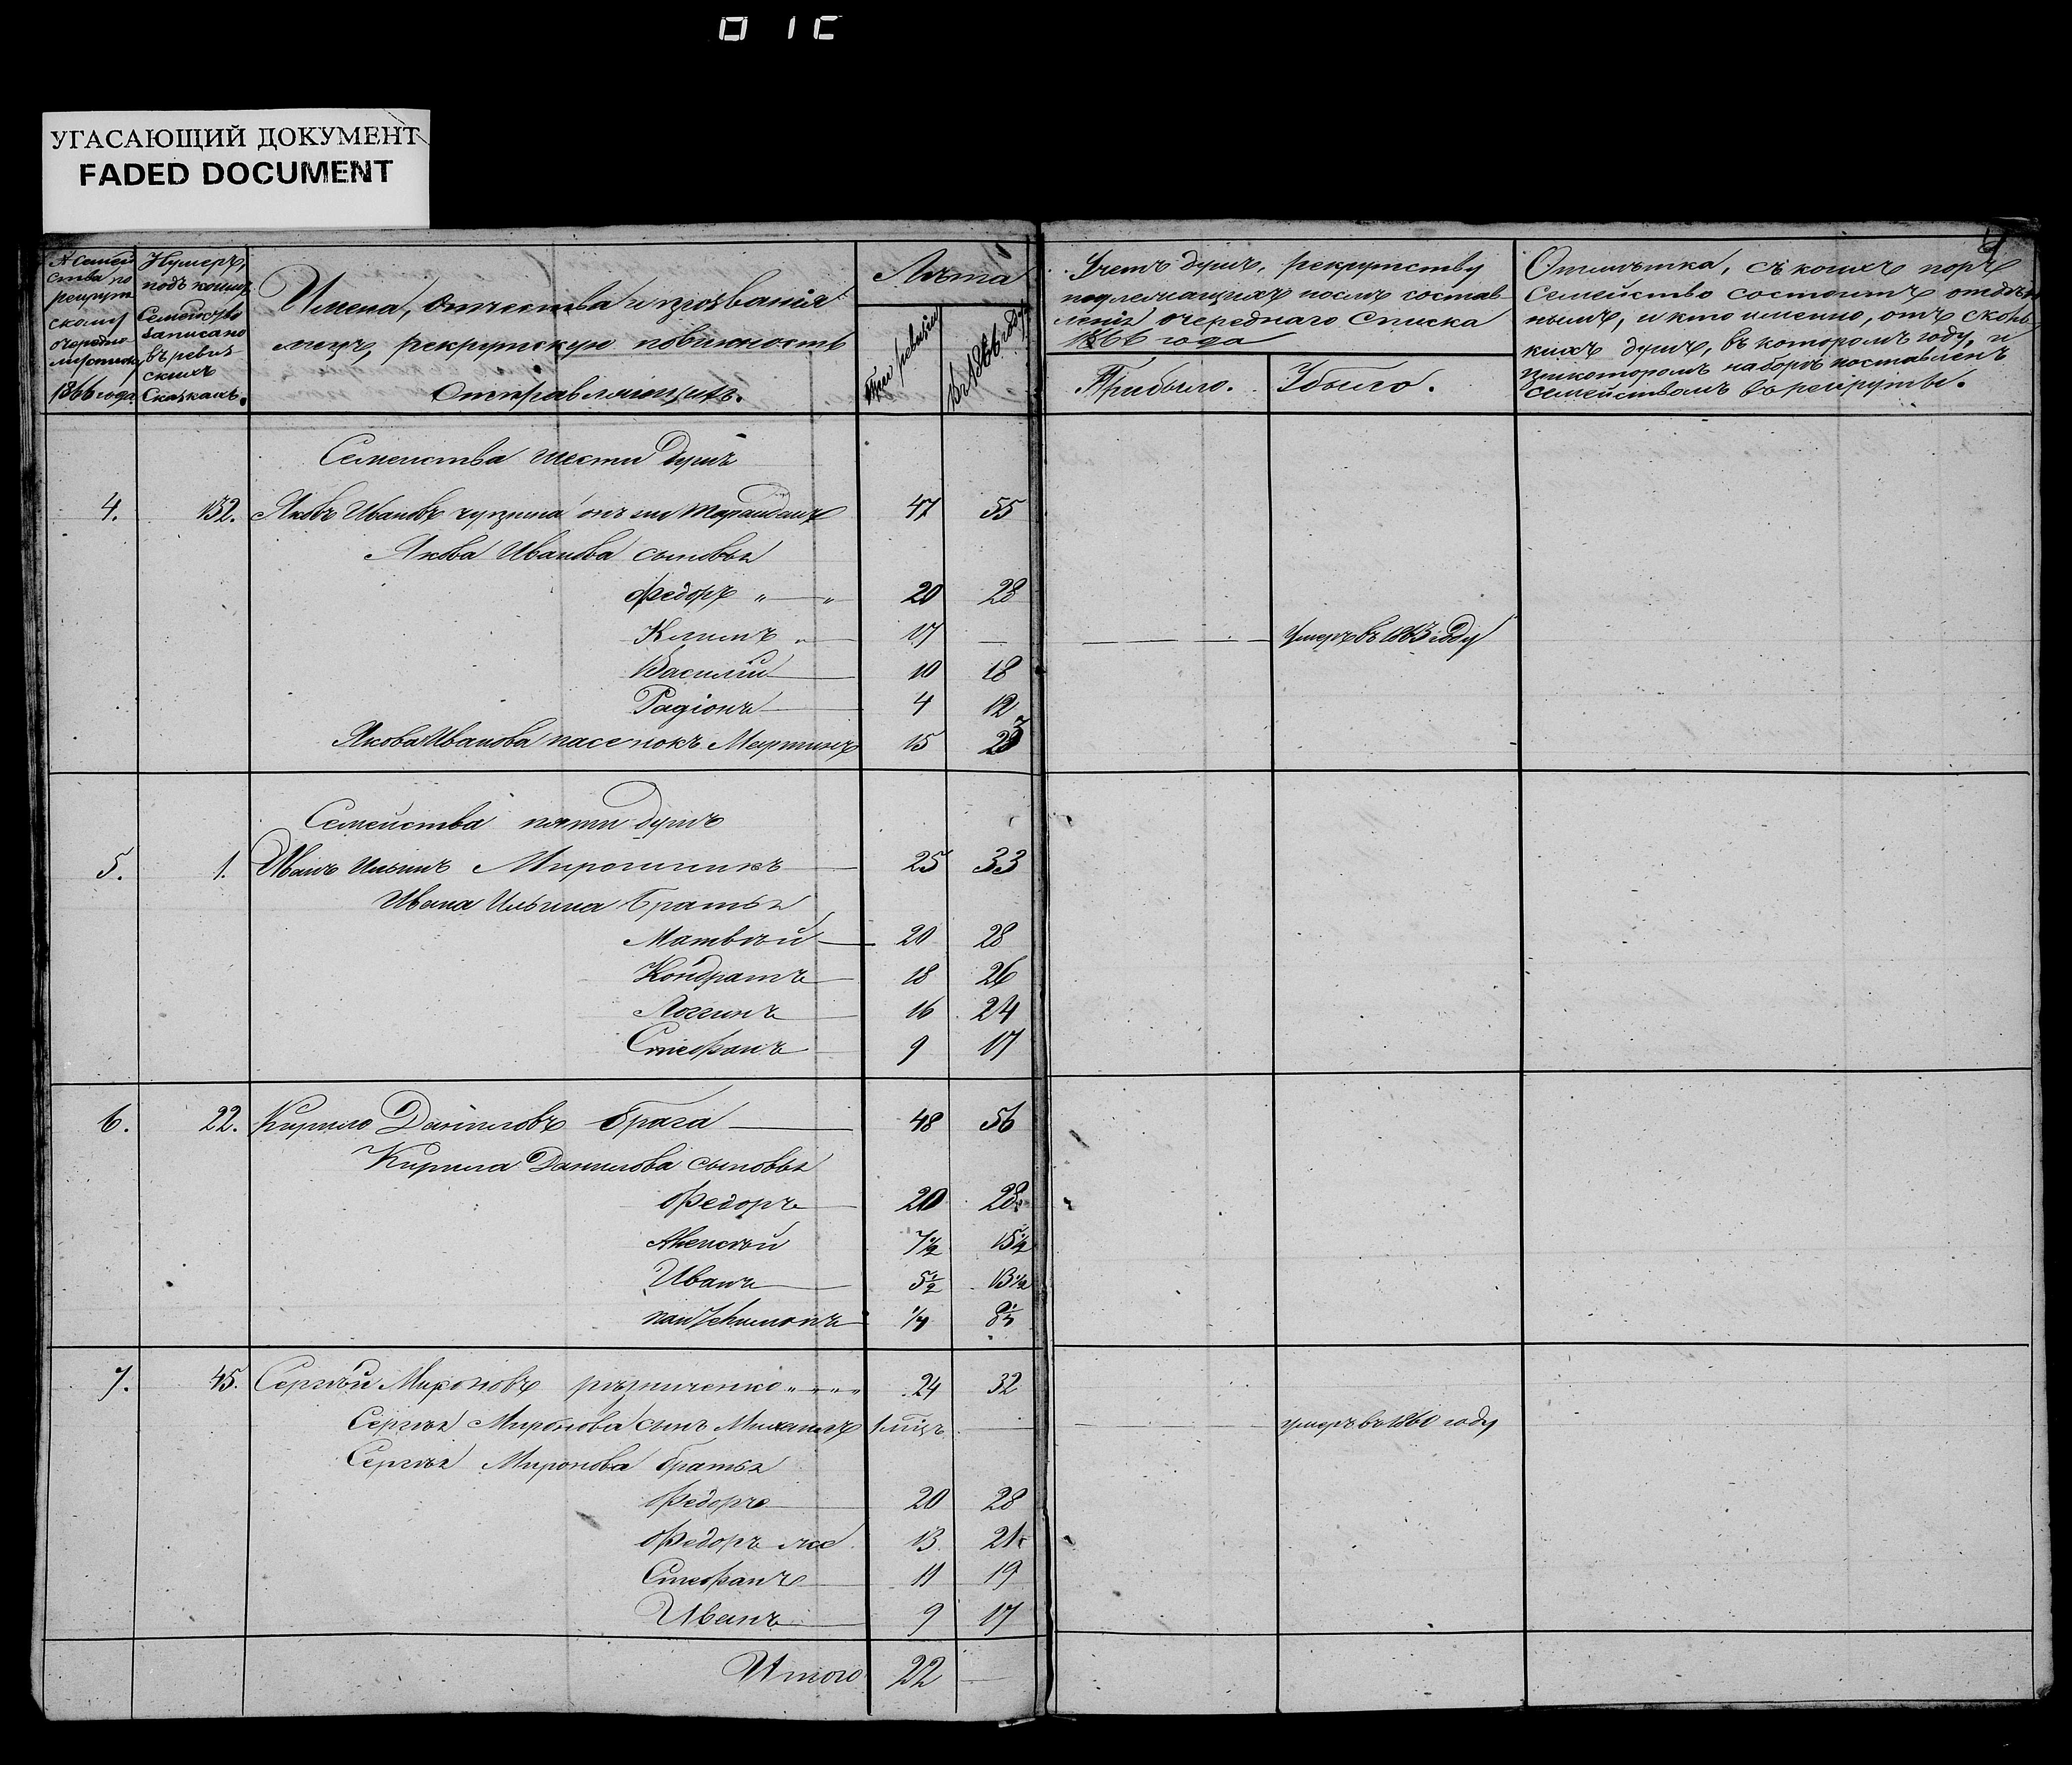 УГАСАЮЩИЙ ДОКУМЕНТ
FADED DOCUMENT
№ Семей
ства по
рекрут
скому
очередно
му списку
1866 года
Нумеръ,
подъ коимъ
Семейство
записано
въ ревиз
скихъ
Сказкахъ.
Имена, отчества и прозванія
лицъ, рекрутскую повинность
отправляющихъ.
Лѣта
По ревизіи
Въ 1866 году
Учетъ душъ, рекрутству
подлежащихъ послѣ состав-
ленія очереднаго Списка
1866 года
Прибыло. Убыло.
Отмѣтка, съ коихъ поръ
Семейство состоитъ отдѣль
нымъ, и кто именно, отъ сколь
кихъ душъ, въ которомъ году, и
при которомъ наборѣ поставленъ
семействомъ въ рекруты.
Семейства шести душъ
4. 132. Яковъ Ивановъ онъ же 47 55
Якова Иванова сыновья
Федоръ „ — „ 20 28
Климъ „ — 17 — — умеръ въ 1863 году
Василій — 10 18
Радіонъ — 4 12
Якова Иванова пасенокъ Мартинъ 15 23
Семейства пяти душъ
5. 1. Иванъ Ильинъ Мирошникъ — 25 33
Ивана Ильина братья
Матвѣй — 20 28
Кондратъ — 18 26
Логгинъ — 16 24
Стефанъ — 9 17
6. 22. Кирило Даниловъ брага — 48 56
Кирила Данилова сыновья
Федоръ — 20 28
Алексѣй 7½ 15½
Иванъ — 5½ 13½
8½
7. 45. Сергѣй Мироновъ рѣзниченко „ „ „ „ 24 32
Сергѣя Миронова сынъ Михаилъ 1 мѣсц. — — умеръ въ 1860 году
Сергѣя Миронова братья
Федоръ — 20 28
Федоръ же 13 21
Стефанъ — 11 19
Иванъ — 9 17
Итого 22 —